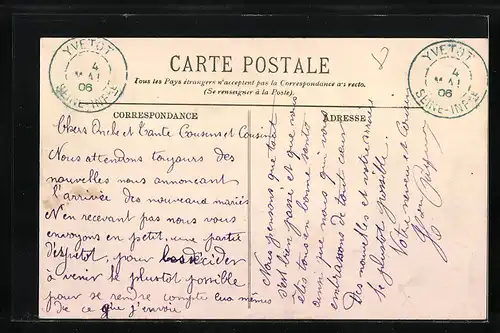 YVETOT
4
MAI
06
SEINE-INF-RE
YVETOT
4
MAI
06
SEINE-INF-RE
CARTE POSTALE
Tous les Pays étrangers n'acceptent pas la Correspondance au recto.
(Se renseigner à la Poste).
CORRESPONDANCE
ADRESSE
Chers Oncle et Tante Cousins et Cousine
Nous attendons toujours des
nouvelles nous annoncant
l'arrivée des nouveaux mariés
N'en recevant pas nous vous
envoyons en petit, une partie
d'Yvetot, pour les décider
à venir le plustot possible
pour se rendre compte eux mêmes
de ce que j'envoi
Nous pensons que tout
s'est bien passé et que vous
etes tous en bonne santé
ainsi que nous qui vous
embrassons de tout coeur
Des nouvelles et votre arrivée
le plustot possible.
Votre neveu et cousin